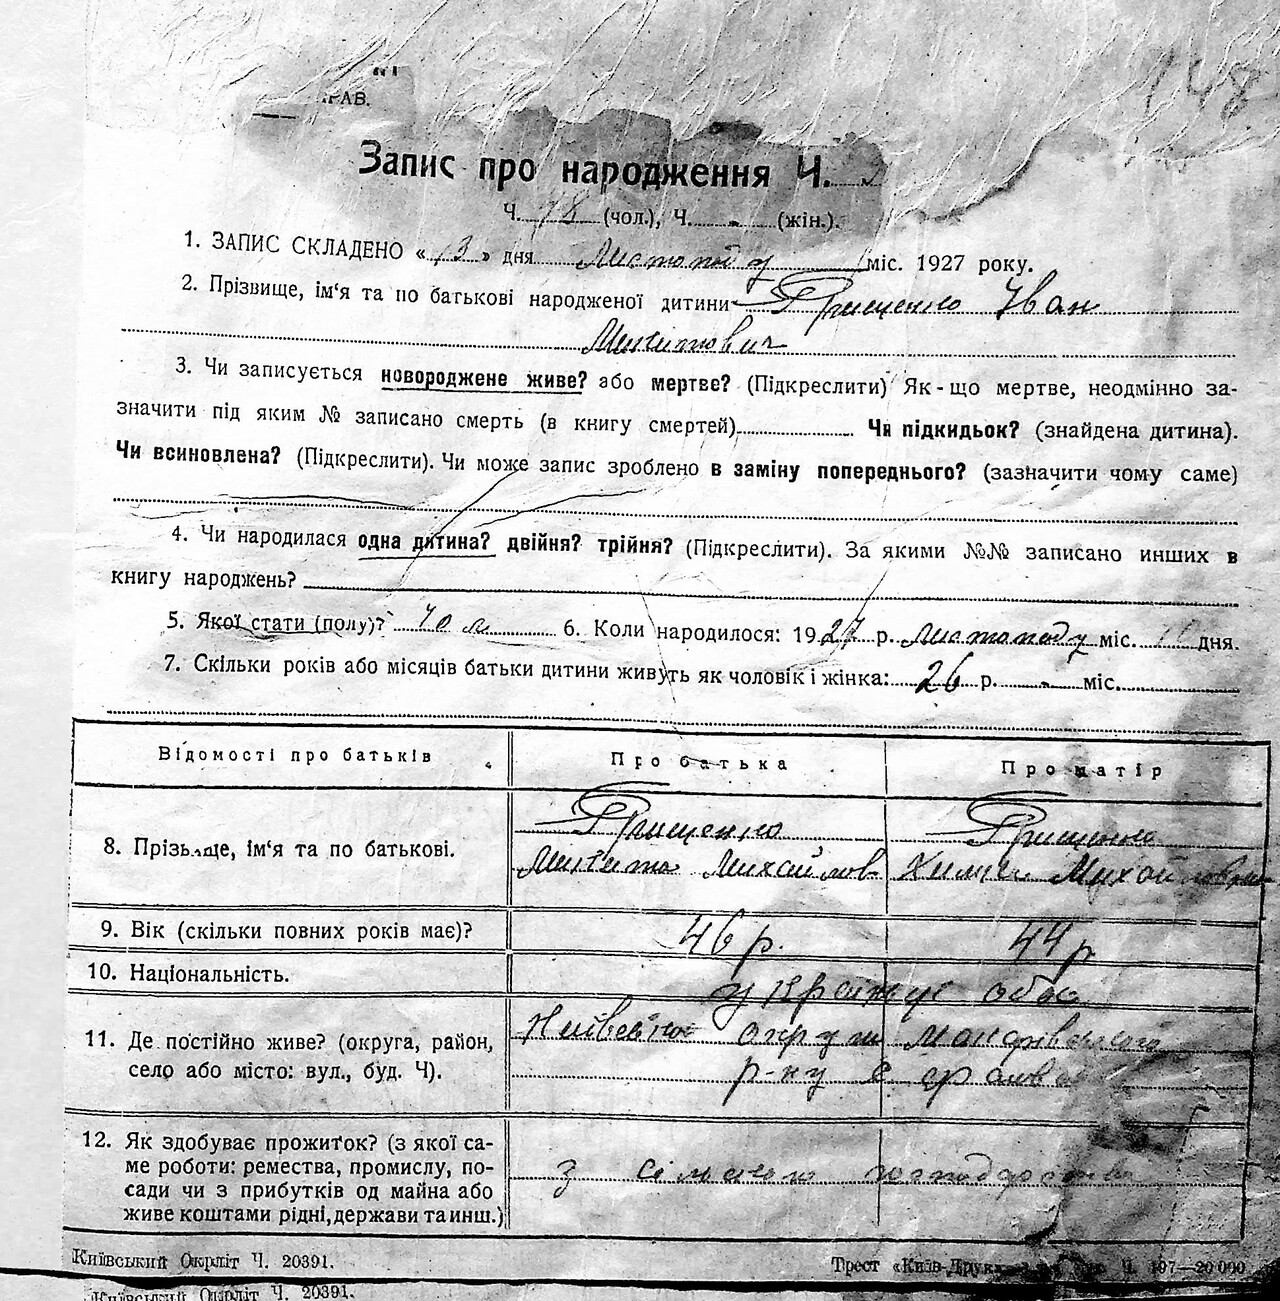 РАВ.
148
Запис про народження Ч.
Ч. 78 (чол.), Ч. - (жін.).
1. ЗАПИС СКЛАДЕНО «13» дня Листопаду міс. 1927 року.
2. Прізвище, ім'я та по батькові народженої дитини Грищенко Іван
Микитович
3. Чи записується новороджене живе? або мертве? (Підкреслити) Як-що мертве, неодмінно за-
значити під яким № записано смерть (в книгу смертей) Чи підкидьок? (знайдена дитина).
Чи всиновлена? (Підкреслити). Чи може запис зроблено в заміну попереднього? (зазначити чому саме)
4. Чи народилася одна дитина? двійня? трійня? (Підкреслити). За якими №№ записано инших в
книгу народжень?
5. Якої стати (полу)? чол 6. Коли народилося: 1927 р. листопаду міс. дня.
7. Скільки років або місяців батьки дитини живуть як чоловік і жінка: 26 р. - міс.
Відомості про батьків Про батька Про матір
8. Прізвище, ім'я та по батькові. Грищенко Грищенко
Микита Михайлов Михайловна
9. Вік (скільки повних років має)? 46 р. 44 р
10. Національність. українці оба
11. Де постійно живе? (округа, район, округи
село або місто: вул., буд. Ч). р-ну с
12. Як здобуває прожиток? (з якої са-
ме роботи: ремества, промислу, по- з сільського господарства
сади чи з прибутків од майна або
живе коштами рідні, держави та инш.)
Київський Окрліт Ч. 20391. Трест «Київ-Друк» Ч. 197—20 000
Київський Окрліт Ч. 20391.